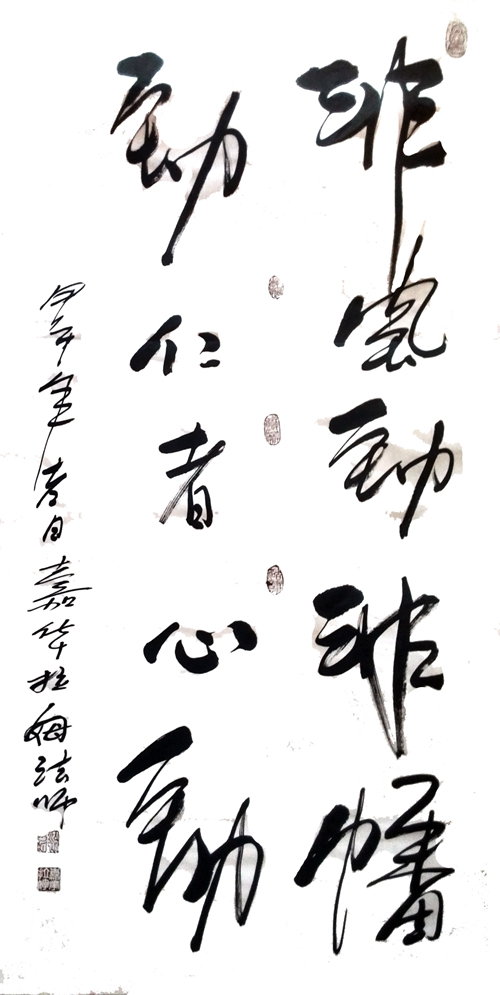 非風動非幡
動仁者心動
甲午年春月嘉华拉姆法师